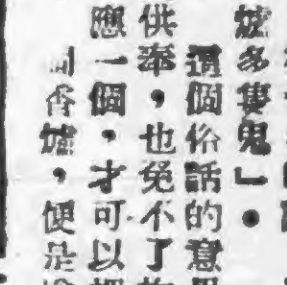 爐多隻鬼」。
這個俗話的意
供奉，也免不了
應一個，才可以
個香爐，便是